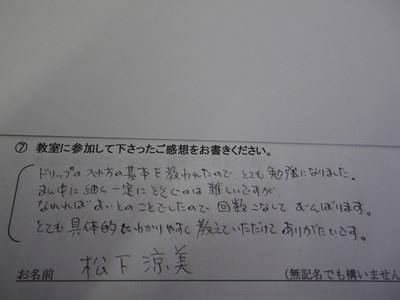 ⑦ 教室に参加して下さったご感想をお書きください。
ドリップの入れ方の基本を教われたので、とても勉強になりました。
まん中に細く一定にそそぐのは難しいですが、
なれればよいとのことでしたので、回数こなしてがんばります。
とても具体的にわかりやすく教えていただけてありがたいです。
お名前 松下涼美 (無記名でも構いません